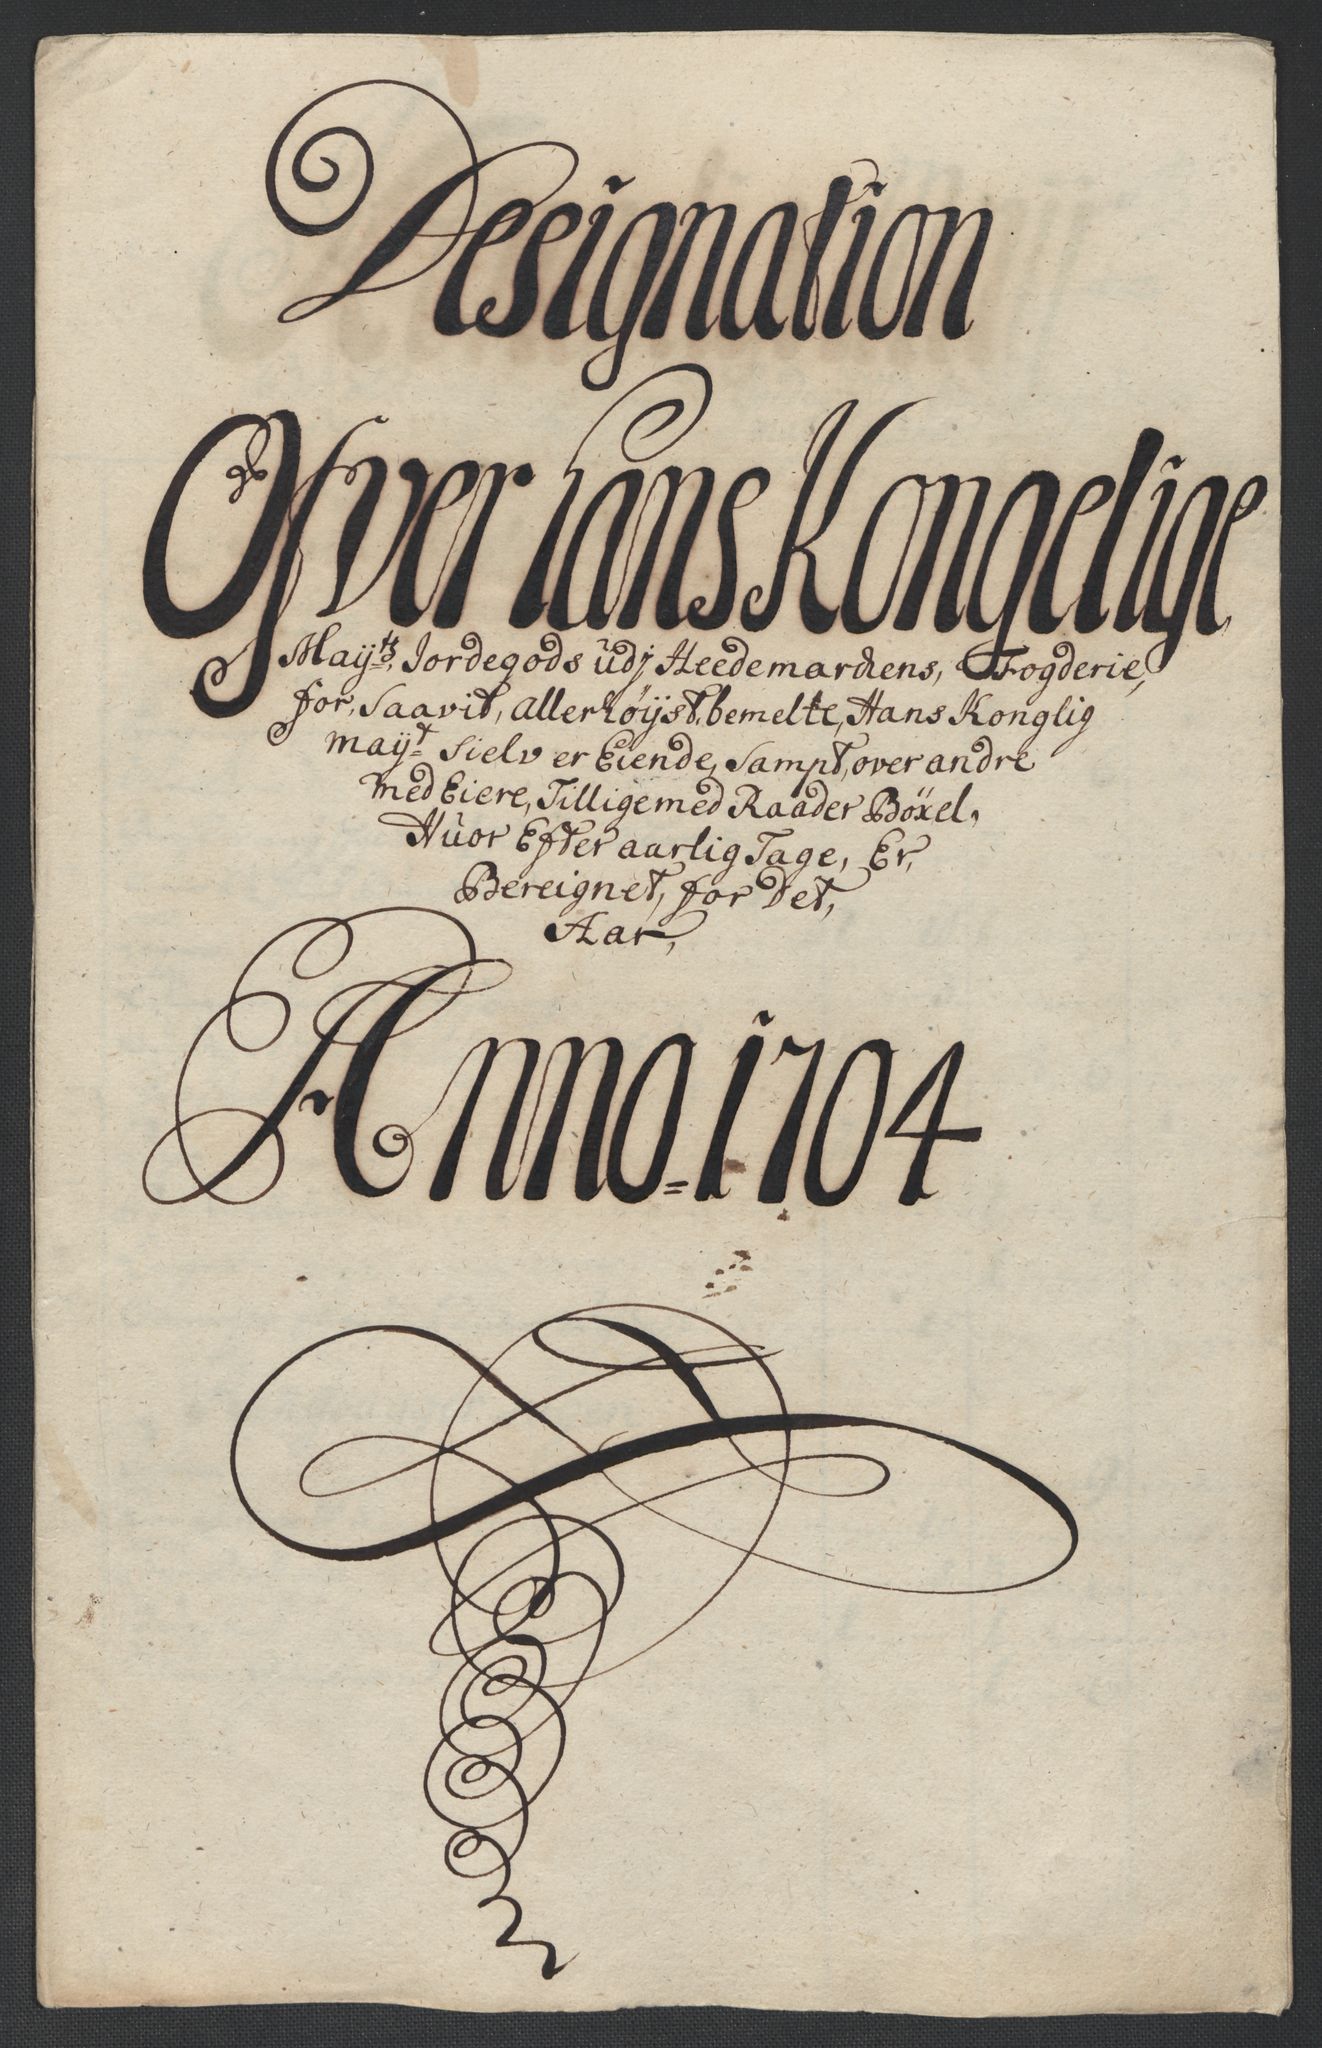 Designation
Ofver hans Kongelige
Mayts, Jordegods udj Heedemarchens, Fogderie,
for, Saavit, allerhöyst, bemelte, Hans Konglig
mayt Sielv er Eiende, Sampt, over andre
med Eiere, Tilligemed Raader Böxel,
Huor Efter aarlig Tage, Er,
Bereignet, for Det,
Aar,
Anno = 1704